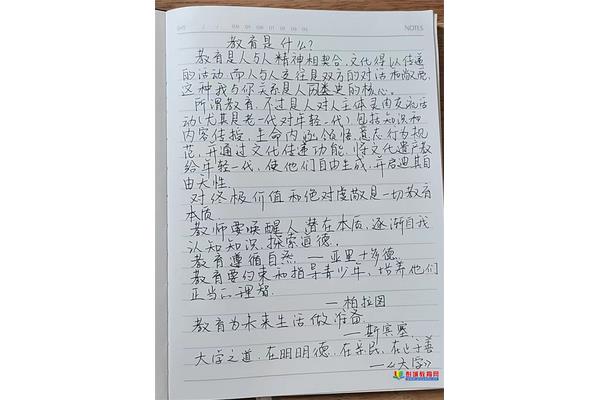 NOTES
教育是什么?
教育是人与人精神相契合,文化得以传递
的活动,而人与人交往是双方的对话和敞亮,
这种我与你关系是人类史的核心。
所谓教育,不过是人对人主体灵肉交流活
动(尤其是老一代对年轻一代)包括知识和
内容传授,生命内涵领悟,意志行为规
范,并通过文化传递功能,将文化遗产教
给年轻一代,使他们自由生成,并启迪其自
由天性。
对终极价值和绝对虔敬是一切教育
本质
教师要唤醒人潜在本质,逐渐自我
认知知识,探索道德。
教育遵循自然 — 亚里士多德
教育要约束和指导青少年,培养他们
正当的理智
—柏拉图
教育为未来生活做准备
—斯宾塞
大学之道,在明明德,在亲民,在止于善
—《大学》
彭城教育网